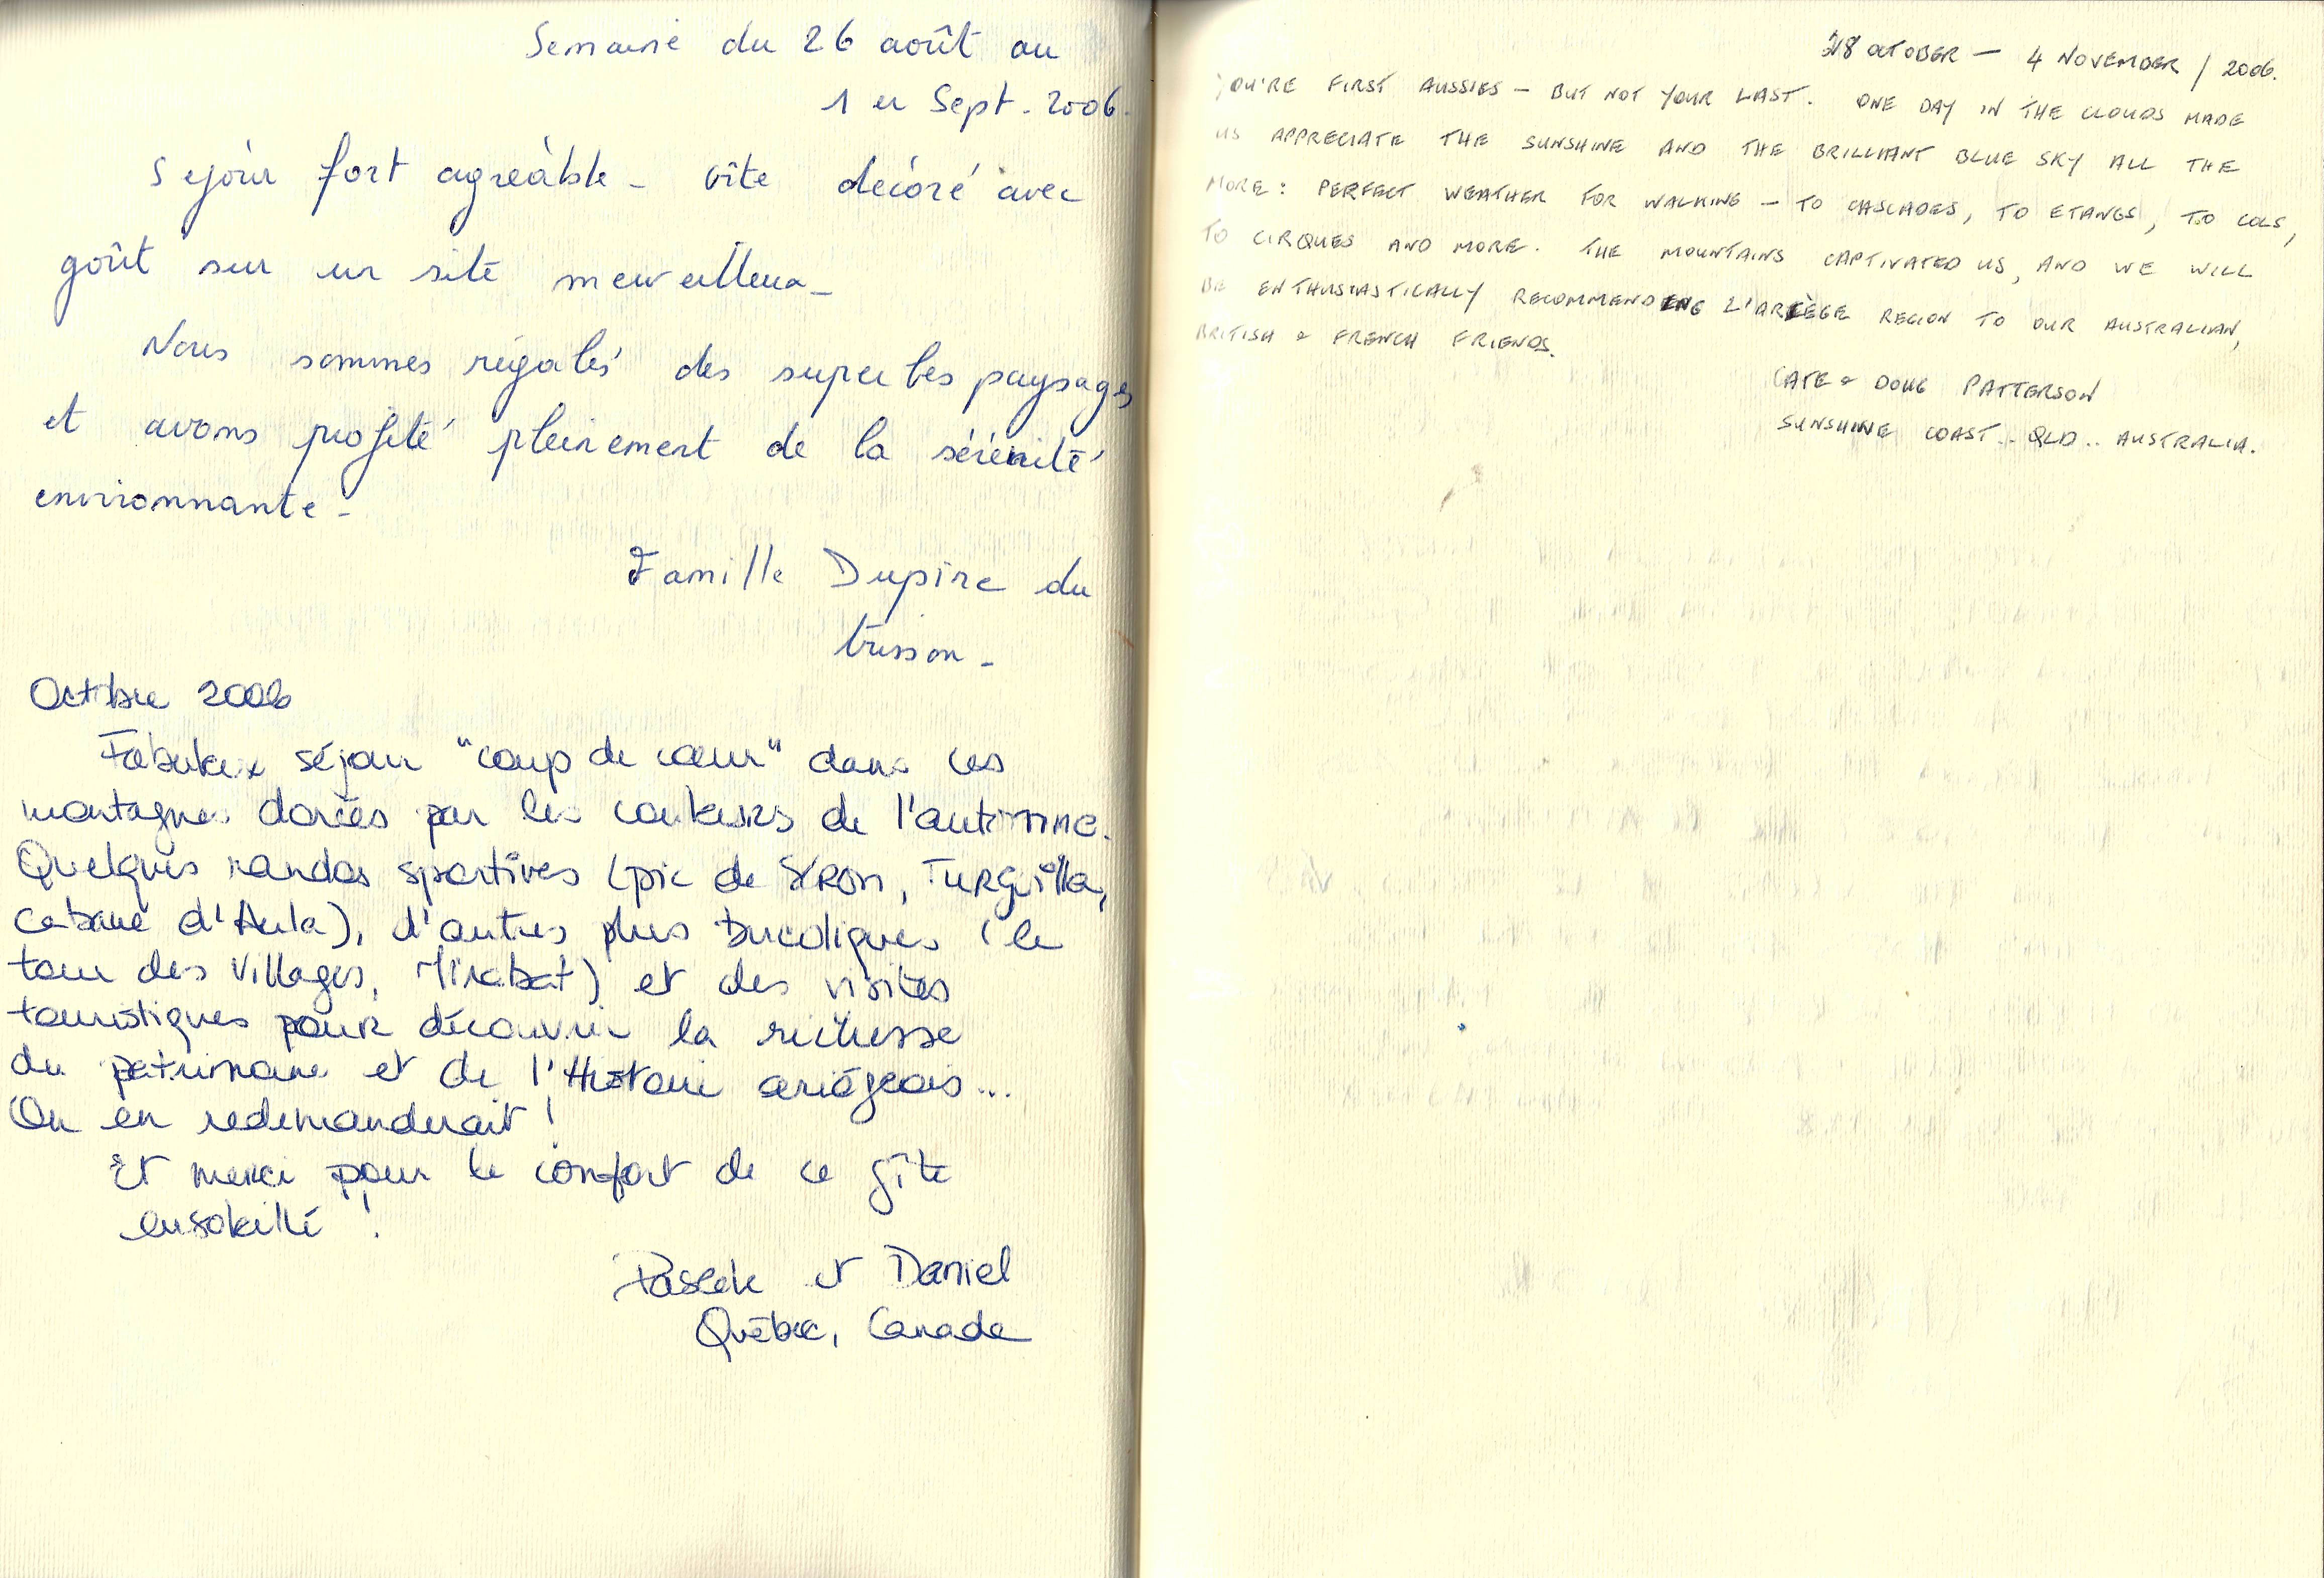 Semaine du 26 août au
1er Sept. 2006.
Séjour fort agréable - Gîte décoré avec
goût sur un site merveilleux -
Nous sommes régalés des superbes paysages
et avons profité pleinement de la sérénité
environnante -
Famille Dupire du
Octobre 2006
Fabuleux séjour "coup de cœur" dans ces
montagnes dorées par les couleurs de l'automne.
Quelques randos sportives (pic de Séron, Turguilla,
cabane d'Aula), d'autres plus bucoliques (le
tour des villages, Mirabat) et des visites
touristiques pour découvrir la richesse
du patrimoine et de l'Histoire ariégeois...
On en redemanderait !
Et merci pour le confort de ce gîte
ensoleillé !
Pascale et Daniel
Québec, Canada
28 OCTOBER — 4 NOVEMBER / 2006.
YOU'RE FIRST AUSSIES - BUT NOT YOUR LAST. ONE DAY IN THE CLOUDS MADE
US APPRECIATE THE SUNSHINE AND THE BRILLIANT BLUE SKY ALL THE
MORE: PERFECT WEATHER FOR WALKING - TO CASCADES, TO ETANGS, TO COLS,
TO CIRQUES AND MORE. THE MOUNTAINS CAPTIVATED US, AND WE WILL
BE ENTHUSIASTICALLY RECOMMENDING L'ARIÈGE REGION TO OUR AUSTRALIAN,
BRITISH & FRENCH FRIENDS.
CATE & DOUG PATTERSON
SUNSHINE COAST.. QLD.. AUSTRALIA.